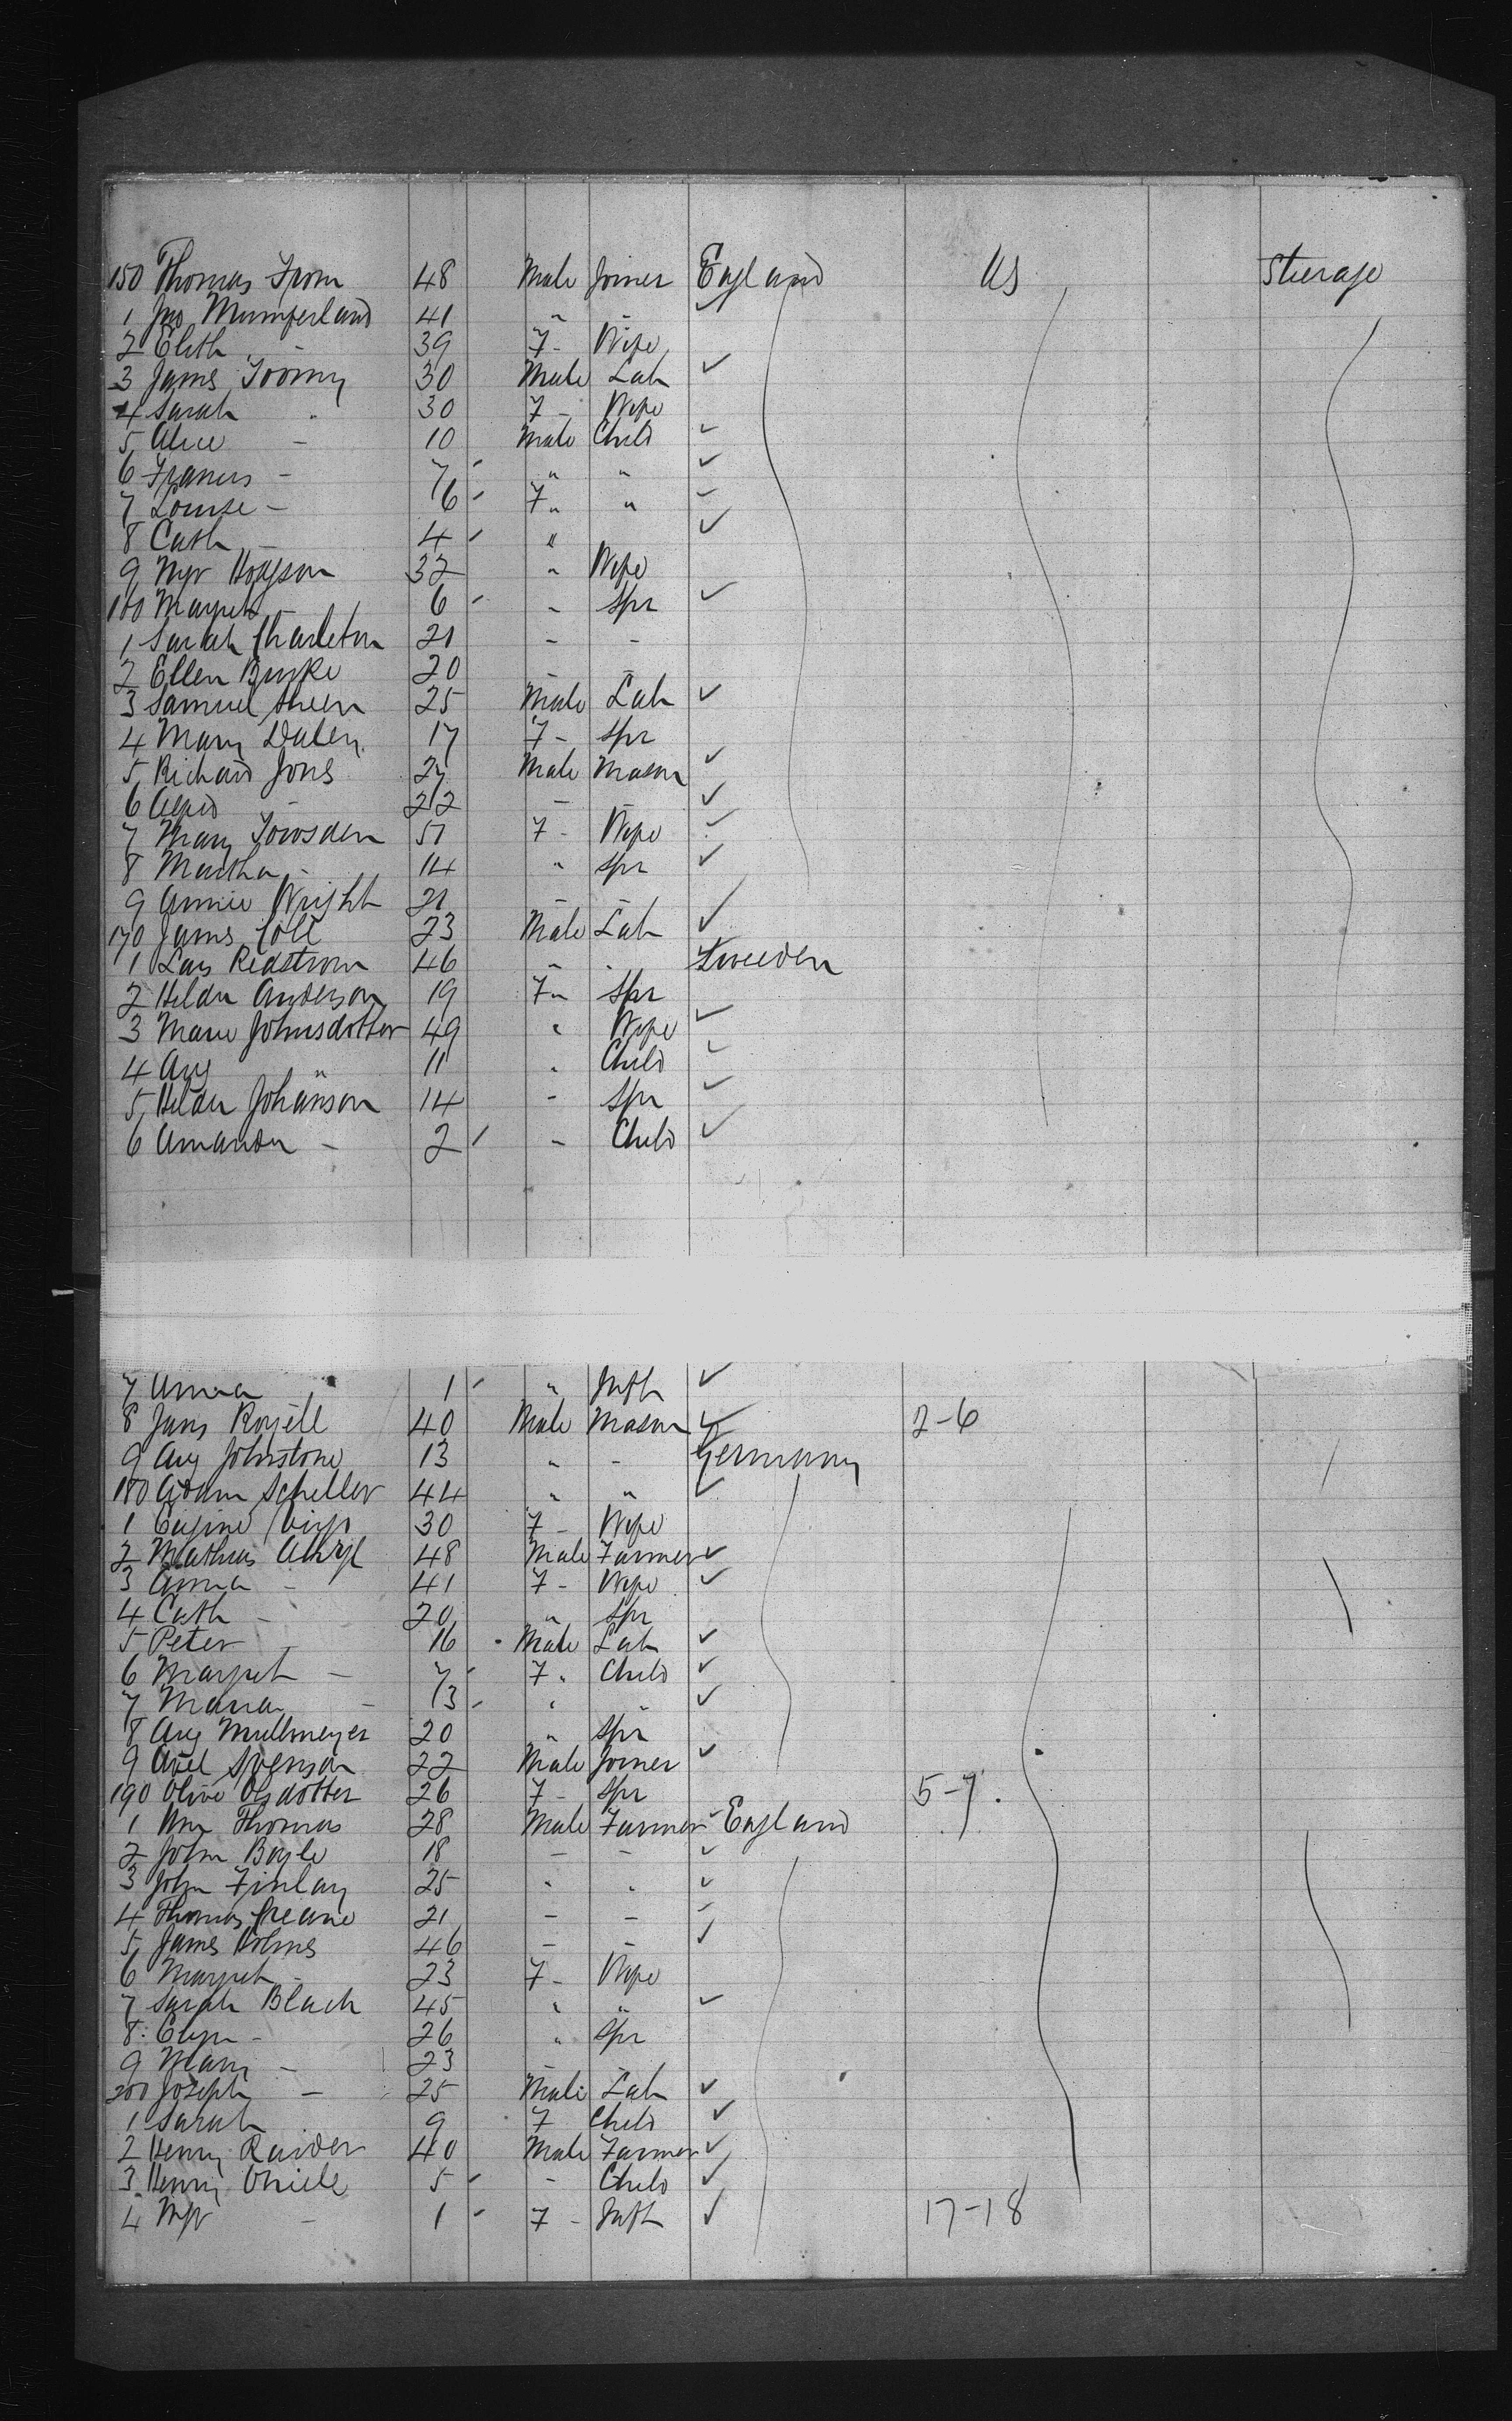 150 Thomas Froom 48 Male Joiner England US Steerage
1 Jno Mumferland 41 " -
2 Elith - 39 F - Wife
3 James Toomy 30 Male Lab
4 Sarah " 30 F - Wife
5 Alice - 10 Male Child
6 Francis - 7 " "
7 Louise - 6 F " "
8 Cath - 4 "
9 Mgr Hodgson 32 " Wife
160 Margret - 6 " Spr
1 Sarah Charleton 21 - -
2 Ellen Burke 20 - -
3 Samuel Sheen 25 Male Lab
4 Mary Daley 17 F - Spr
5 Richard Jones 27 Male Mason
6 Alfred - 22 - -
7 Mary Towsden 51 F - Wife
8 Martha - 14 " Spr
9 Annie Wright 21 - -
170 James Cole 23 Male Lab
1 Lars Redstrom 46 " " Sweeden
2 Hilda Anderson 19 F " Spr
3 Marie Johnsdotter 49 " Wife
4 Aug " 11 " Child
5 Hilda Johanson 14 - Spr
6 Amanda - 2 - Child
7 Anna " 1 " Inft
8 Jans 40 Male Mason 2-6
9 Aug Johnstone 13 " - Germany
180 Adam Scheller 44 " "
1 Eugine 30 F - Wife
2 Mathias 48 Male Farmer
3 Anna - 41 F - Wife
4 Cath - 20 " Spr
5 Peter - 16 Male Lab
6 Margret - 7 F " Child
7 Maria - 3 " "
8 Aug Mullmeyer 20 " Spr
9 Axel Svenson 22 Male Joiner
190 Olive Olsdotter 26 F - Spr 5-7.
1 Wm Thomas 28 Male Farmer England
2 John Boyle 18 - -
3 John Finlay 25 " "
4 Thomas Greane 21 - -
5 James Holmes 46 - -
6 Margret - 23 F - Wife
7 Sarah Black 45 " "
8 - 26 " Spr
9 Mary - 23
200 Joseph - 25 Male Lab
1 Sarah 9 F Child
2 Henry Raider 40 Male Farmer
3 Henry 5 - Child
4 Mgr - 1 F - Inft 17-18